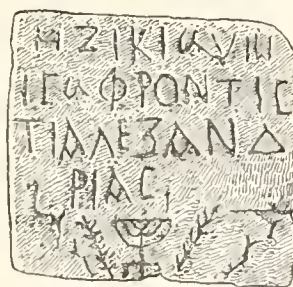 ΗΖΙΚΙΑ ΥΙΩ
ΙΓΑ ΦΡΟΝΤΙC
ΤΙ ΑΛΕΞΑΝΔ
ΡΙΑC